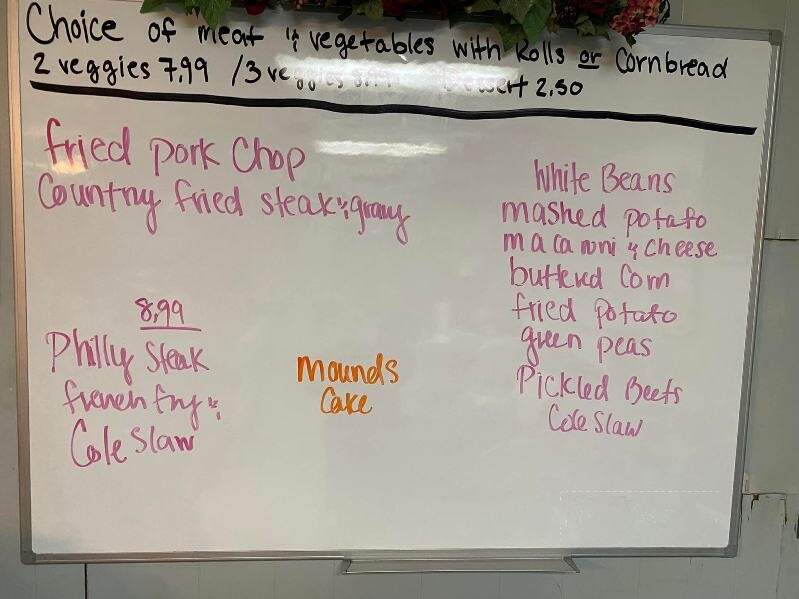 Choice of meat & vegetables with Rolls or Cornbread
2 veggies 7.99 / 3 veggies 8.99 Dessert 2.50
fried pork Chop
Country fried steak & gravy
White Beans
mashed potato
macaroni & cheese
butterd Corn
fried potato
green peas
Pickled Beets
Cole Slaw
8.99
Philly Steak
french fry &
Cole Slaw
Mounds
Cake